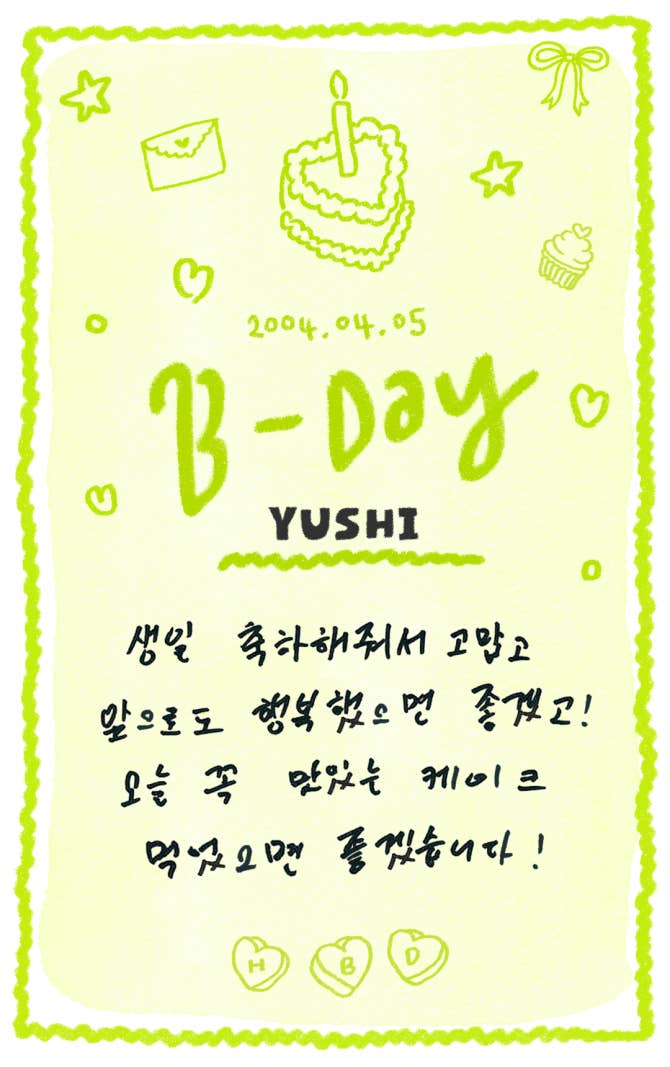 2004.04.05
B-Day
YUSHI
생일 축하해줘서 고맙고
앞으로도 행복했으면 좋겠고!
오늘 꼭 맛있는 케이크
먹었으면 좋겠습니다!
H B D